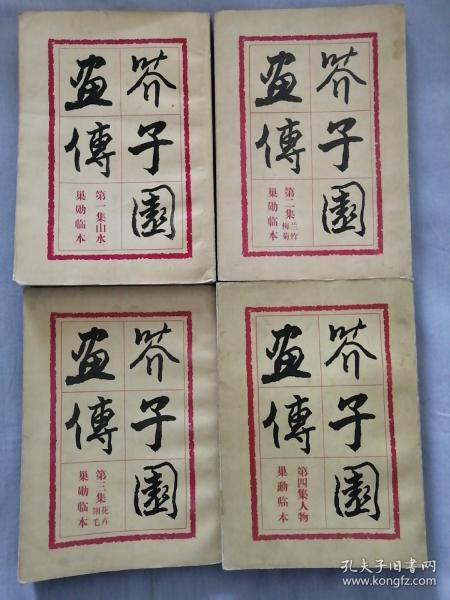 芥子園
畫傳
第一集山水
巢勋临本
芥子園
畫傳
第二集兰竹梅菊
巢勋临本
芥子園
畫傳
第三集花卉翎毛
巢勋临本
芥子園
畫傳
第四集人物
巢勳临本
孔夫子旧书网
www.kongfz.com